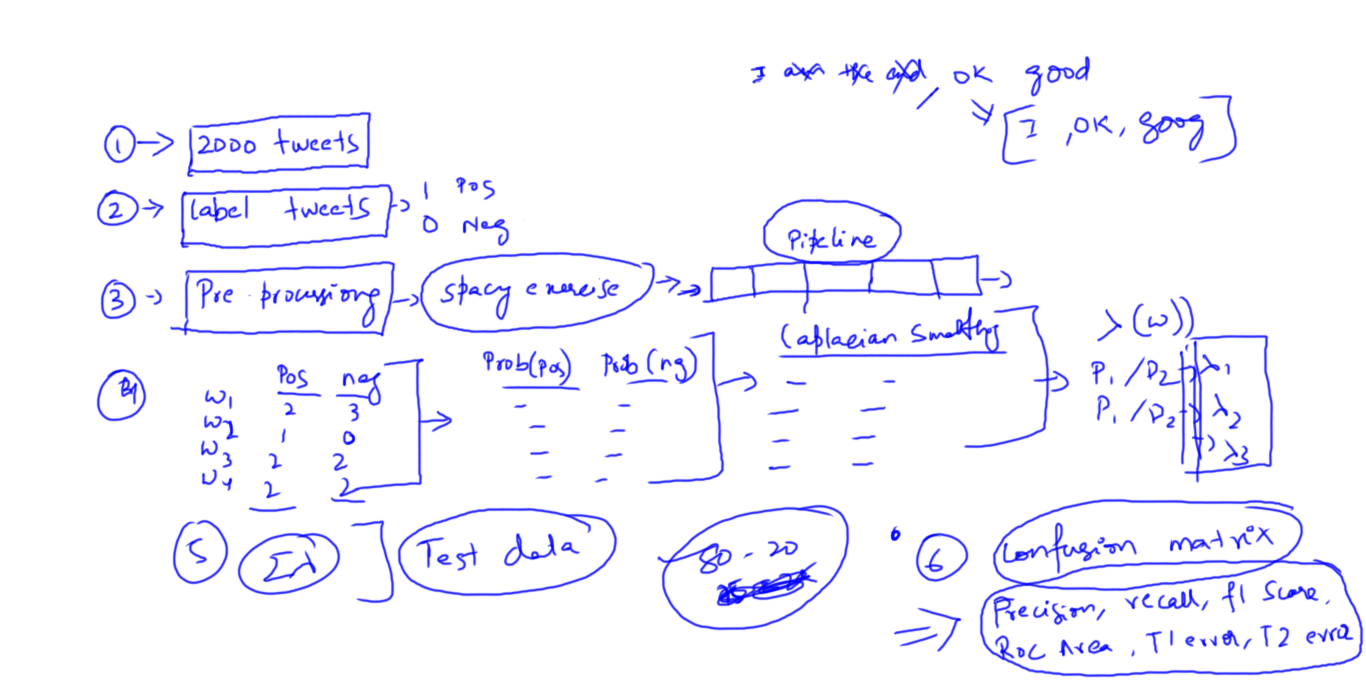 I am the and, OK good
[I, OK, goog]
① → 2000 tweets
② → Label tweets → 1 Pos
0 Neg
Pipeline
③ → Pre processiong → Spacy exercise →
Laplacian Smoothing
λ(w))
Prob(pos) Prob(ng)
Pos neg
w1 2 3
w2 1 0
w3 2 2
w4 2 2
P1/P2 → λ1
P1/P2 → λ2
→ λ3
⑤ Σλ ] Test data 80-20
⑥ Confusion matrix
⇒ Precision, recall, f1 Score,
ROC Area, T1 error, T2 error